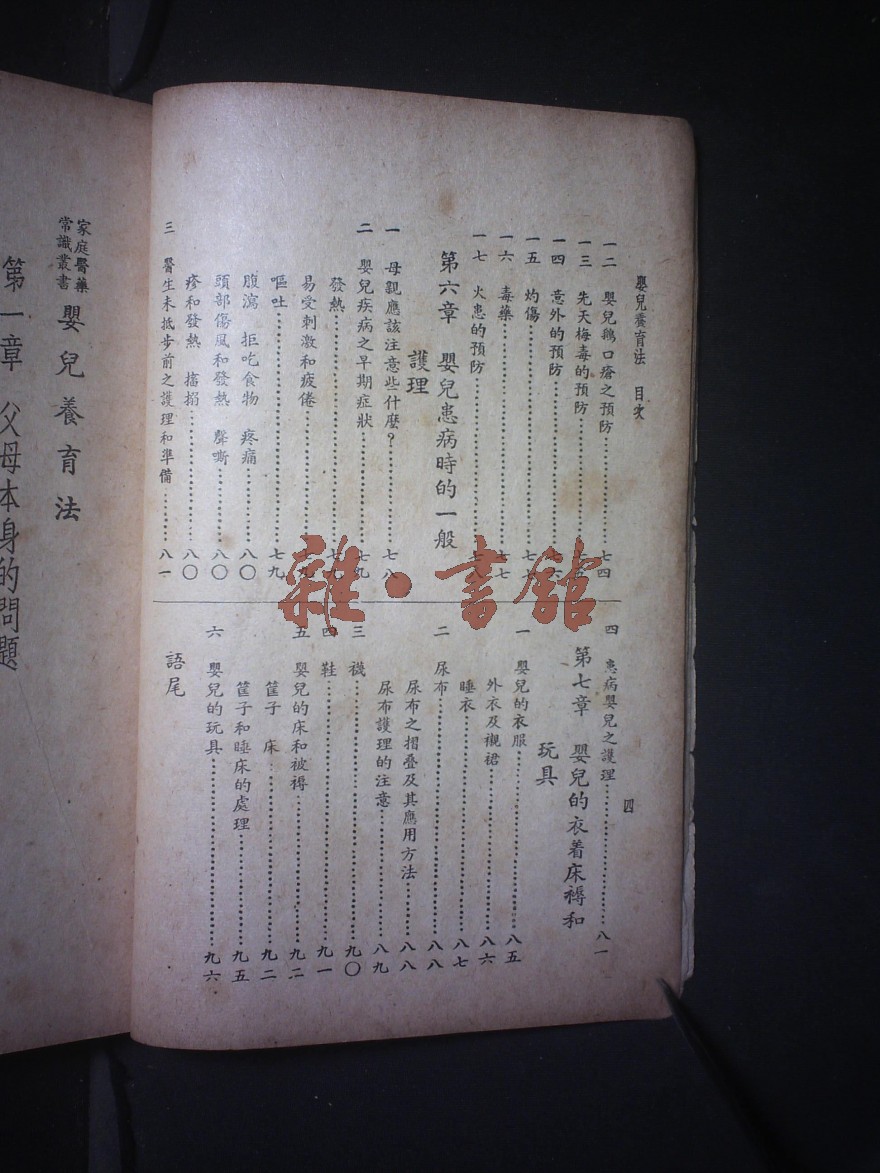 嬰兒養育法 目次
一二 嬰兒鵝口瘡之預防……七四
一三 先天梅毒的預防……
一四 意外的預防……
一五 灼傷……
一六 毒藥……七七
一七 火患的預防……
第六章 嬰兒患病時的一般
護理
一 母親應該注意些什麼?……七八
二 嬰兒疾病之早期症狀……七九
發熱……七九
易受刺激和疲倦……七九
嘔吐……七九
腹瀉 拒吃食物 疼痛……八〇
頭部傷風和發熱 聲嘶……八〇
疹和發熱 搐搦……八〇
三 醫生未抵步前之護理和準備……八一
四 患病嬰兒之護理……八一
第七章 嬰兒的衣着床褥和
玩具
一 嬰兒的衣服……八五
外衣及襯裙……八六
睡衣……八七
二 尿布……八八
尿布之摺叠及其應用方法……八八
尿布護理的注意……八九
三 襪……九〇
四 鞋……九一
五 嬰兒的床和被褥……九二
筐子 床……九二
筐子和睡床的處理……九五
六 嬰兒的玩具……九六
語尾
四
家庭醫藥
常識叢書
嬰兒養育法
第一章 父母本身的問題
雜·書館